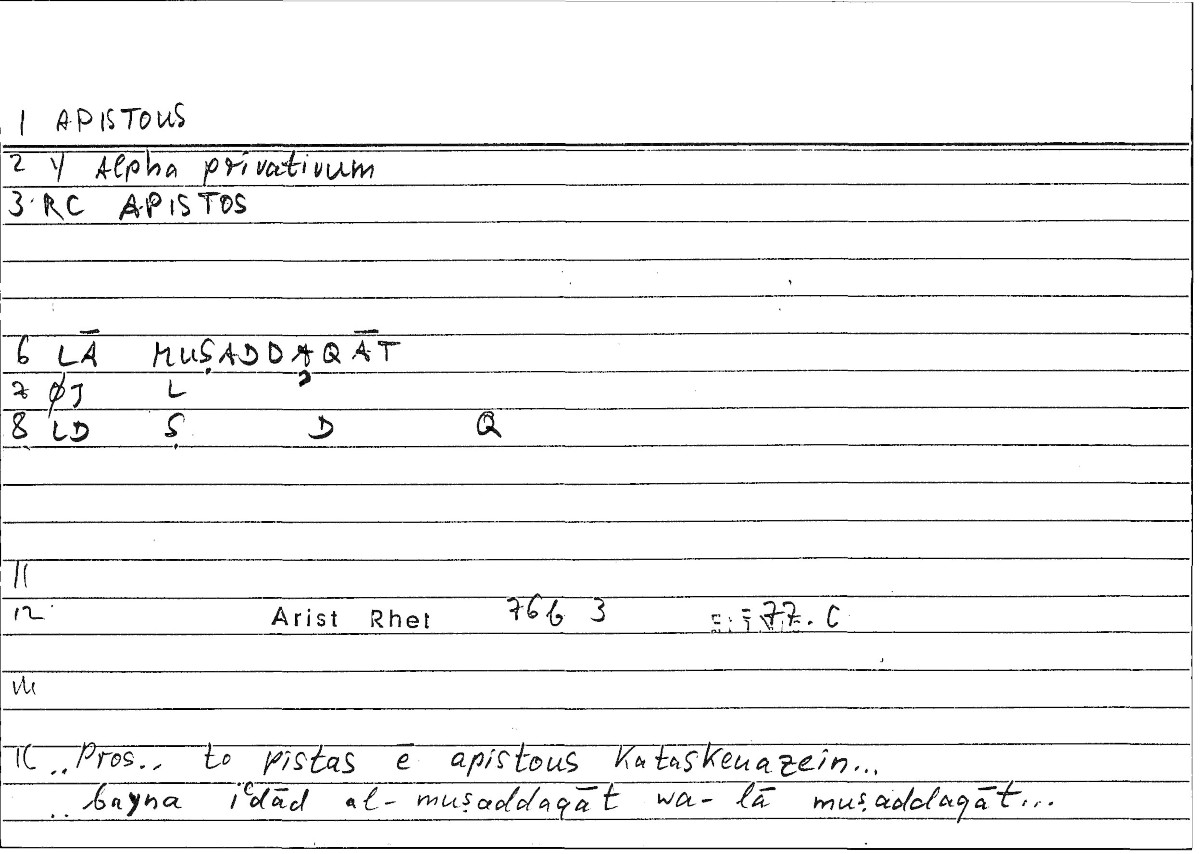 1 APISTOUS
2 Y Alpha privativum
3 RC APISTOS
6 LĀ MUṢADDAQĀT
7 ØJ L 2
8 LD Ṣ D Q
11
12 Arist Rhet 76b 3 77.
14
16 ..Pros.. to pistas ē apistous kataskeuazein...
..bayna iʿdād al-muṣaddaqāt wa-lā muṣaddaqāt...